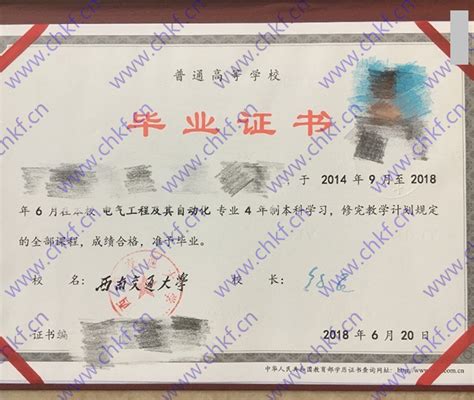 普通高等学校
毕业证书
，于 2014 年 9 月至 2018
年 6 月在本校 电气工程及其自动化 专业 4 年制本科学习，修完教学计划规定
的全部课程，成绩合格，准予毕业。
校 名：西南交通大学 校 长：
证书编
2018 年 6 月 20 日
中华人民共和国教育部学历证书查询网址：
www.chkf.cn